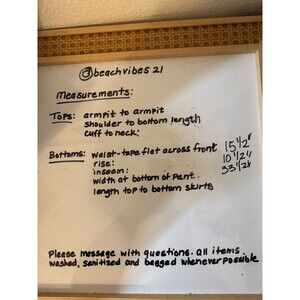 @beachvibes21
Measurements:
Tops: armpit to armpit
shoulder to bottom length
cuff to neck:
Bottoms: waist-tape flat across front 15 1/2"
rise: 10 1/2"
inseam: 33 1/2"
width at bottom of pant.
length top to bottom skirts
Please message with questions. all items
washed, sanitized and bagged whenever possible